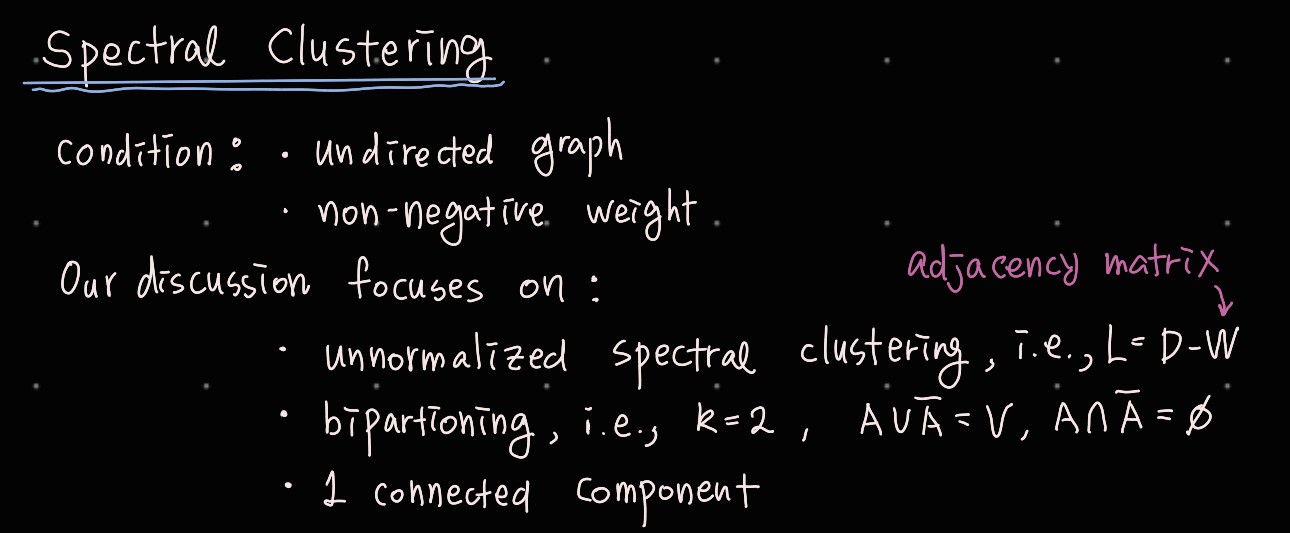 Spectral Clustering
condition: · undirected graph
· non-negative weight
Our discussion focuses on :
adjacency matrix
↓
· unnormalized spectral clustering, i.e., L = D-W
· bipartioning, i.e., k=2, A∪A̅ = V, A∩A̅ = ∅
· 1 connected component